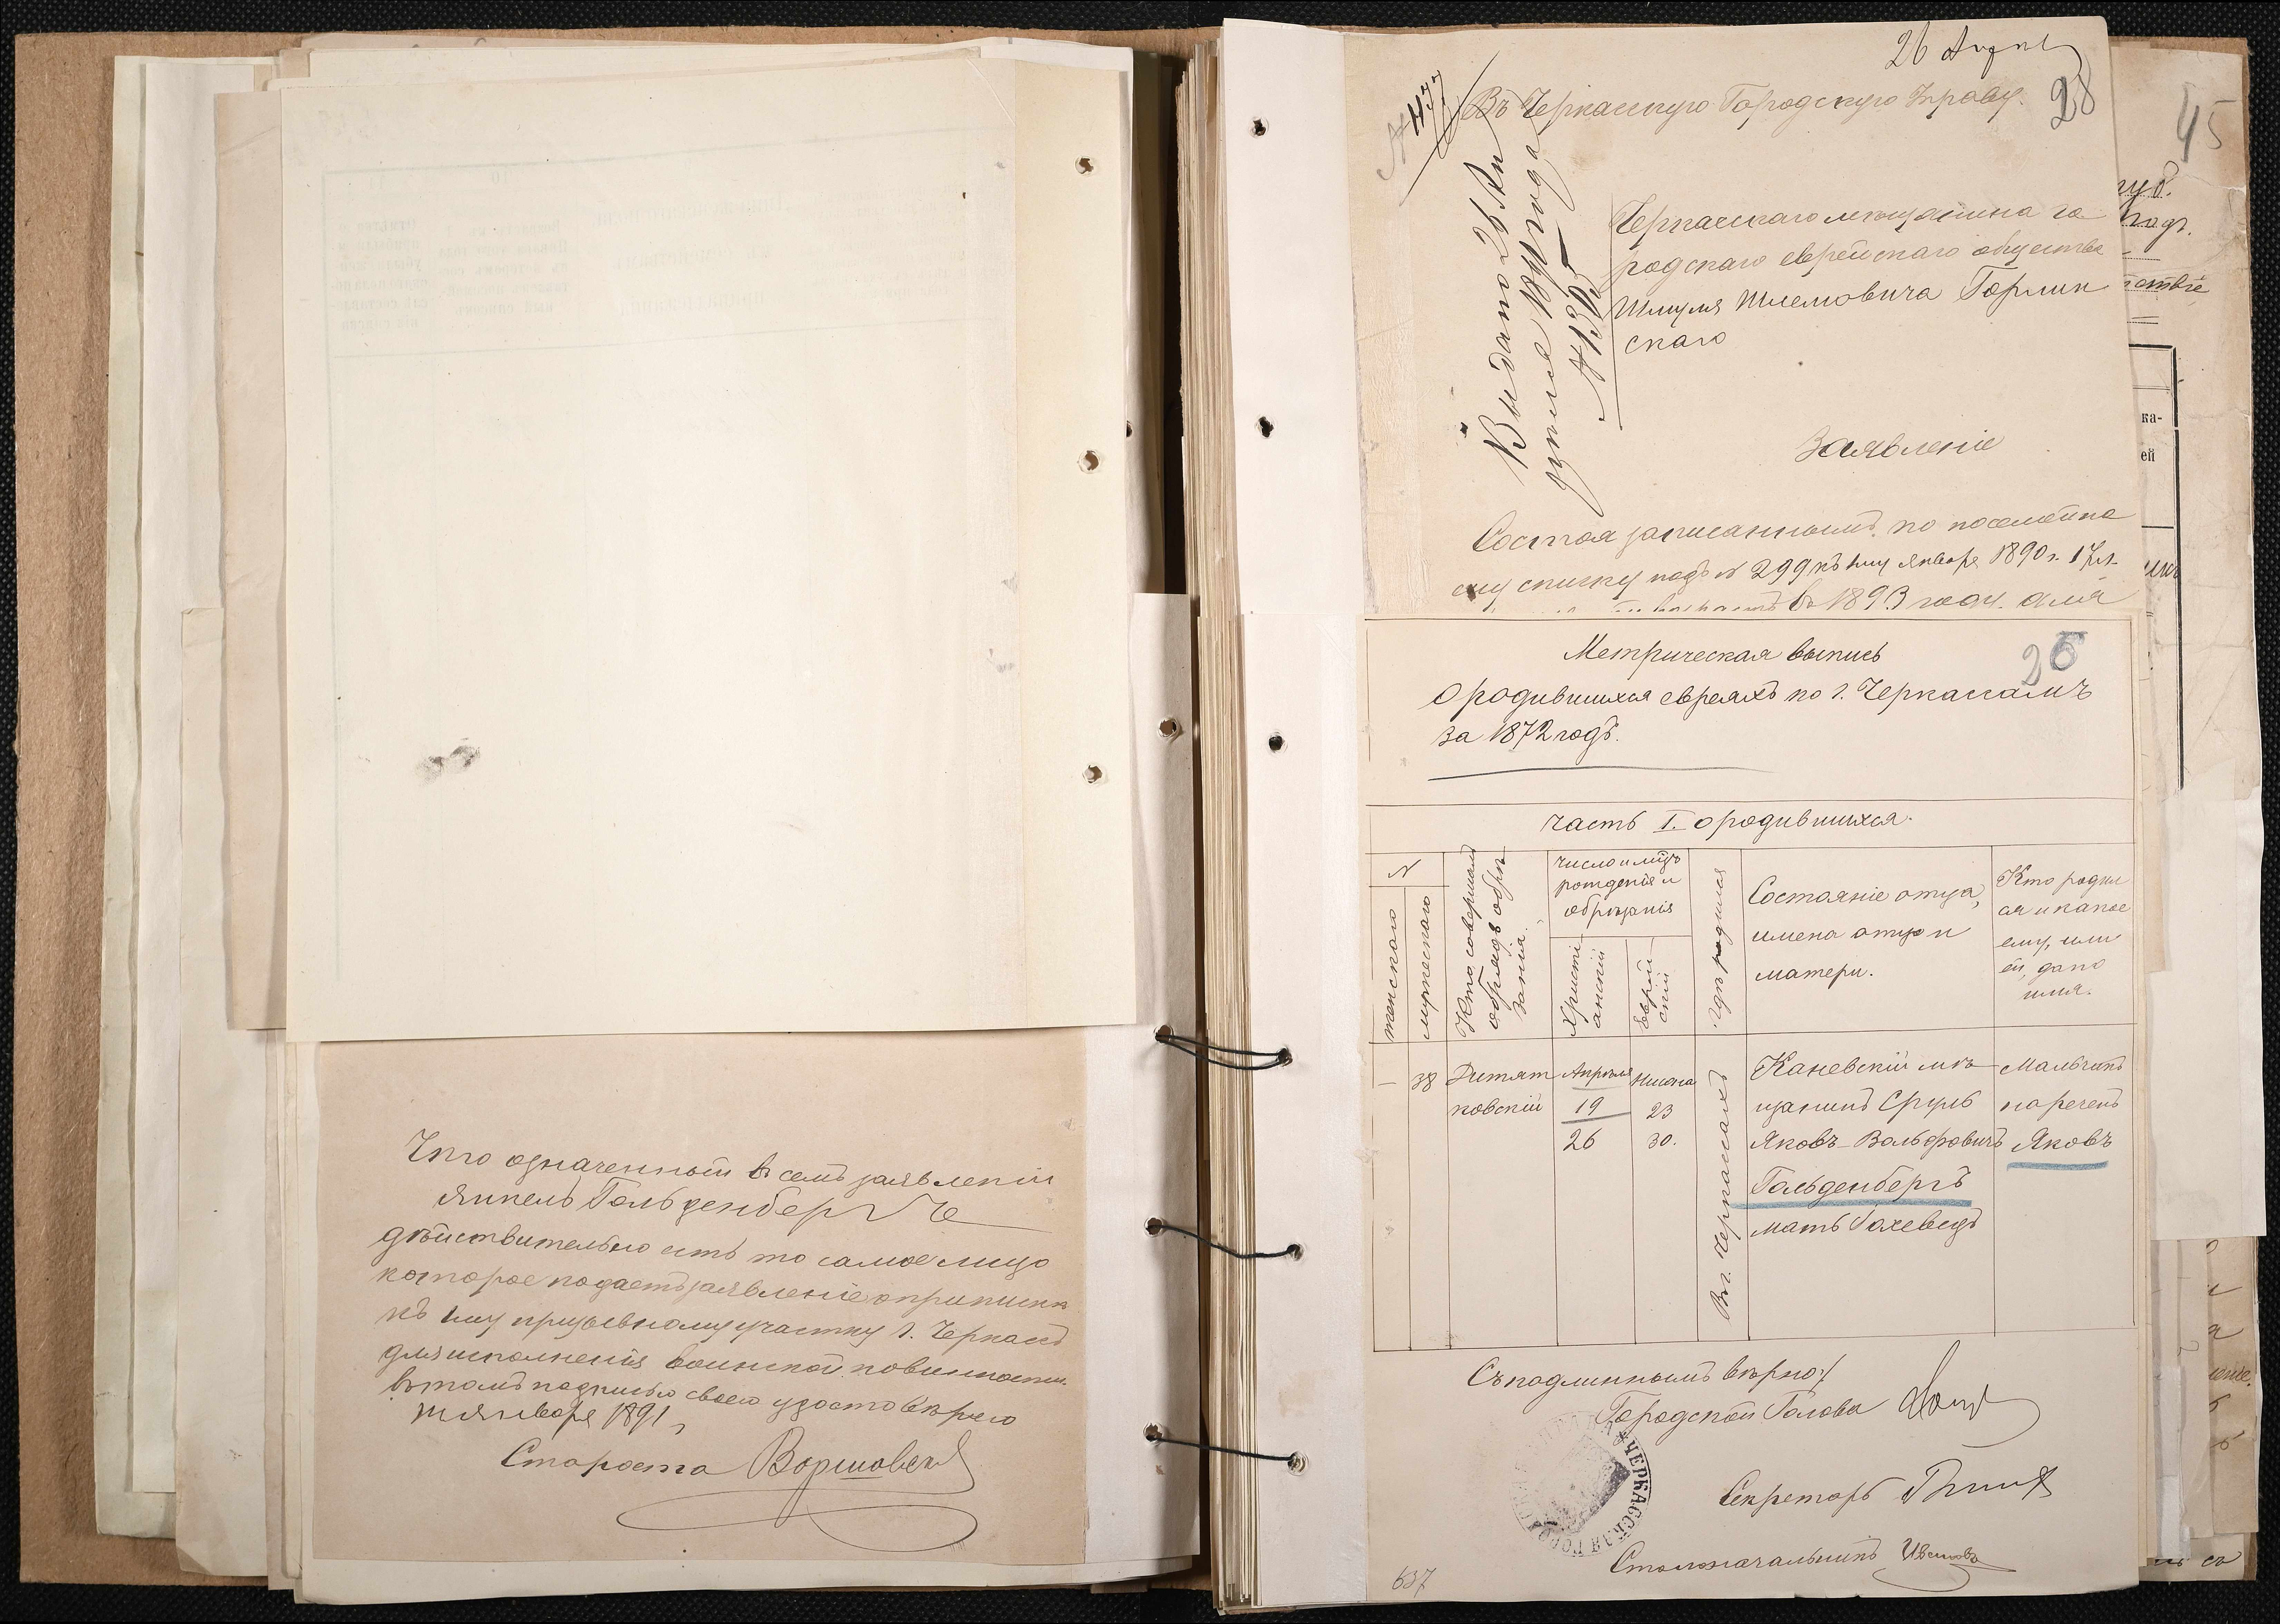 Что означенный въ семъ заявленіи
Янкель Гольденбергъ
дѣйствительно есть то самое лицо
которое подаетъ заявленіе о припискѣ
къ 1му призывному участку г. Черкасъ
для исполненія воинской повинности
въ томъ подписью своею удостовѣряю
января 1891
Староста
28
Въ Черкасскую Городскую Управу.
Выдано 26 Ян
1891 года
№ 1395
Черкасскаго мещанина го
родскаго еврейскаго общества
Шмуля Шлемовича Горлин
скаго
Заявленіе
Состоя записаннымъ по посемейно
му списку подъ № 299 къ 1му Января 1890 г. 17 л.
1893 году
Метрическая выпись
26
о родившихся евреяхъ по г. Черкассамъ
за 1872 годъ.
Часть I. о родившихся.
№
женскаго
мужескаго
Кто совершалъ
обрядъ обрѣ
занія.
Число и мѣсяцъ
рожденія и
обрѣзанія
Христі
анскій
Еврей
скій
Гдѣ родился
Состояніе отца,
имена отца и
матери.
Кто родил
ся и какое
ему, или
ей, дано
имя.
— 38 Дитят Апрѣля Нисона Каневскій мѣ Мальчикъ
ковскій 19 23 щанинъ Сруль нареченъ
26 30. Яковъ-Вольфовичъ Яковъ
Гольденбергъ
мать Іохеведъ
Въ г. Черкассахъ
Съ подлиннымъ вѣрно:
Городской Голова
Секретарь
Столоначальникъ
ЧЕРКАССКАЯ ГОРО
637
45
губ.
ка-
ей